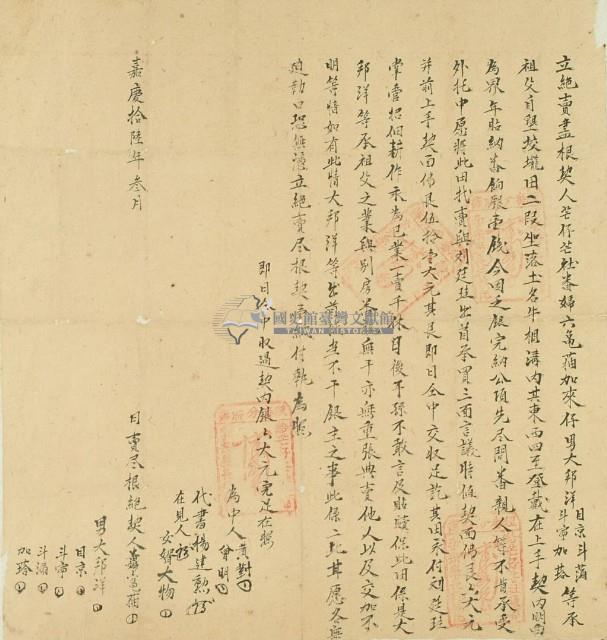 立絕賣盡根契人芒仔芒社番婦六亀蒲加來仔男大邦洋目京斗蒲斗寧加蓓等承
祖父自墾埪壠田二段坐落土名牛相溝內其東西四至登載在上手契內明白
為界年貼納番餉銀壹錢今因乏銀完納公項先尽問番親人等不肯承受
外托中愿將此田找賣與刘廷珪出首承買三面言議時值契面佛艮大元
并前上手契面佛艮伍拾壹大元其艮即日仝中交收足訖其田末付刘廷珪
掌管招佃耕作永為己業一賣千休日後子孫不敢言及貼贖保此田係是大
邦洋等承祖父之業與別房人無干亦無重張典賣他人以及交加不
明等情如有此情大邦洋等出首抵當不干銀主之事此係二比甘愿各無
迫勒口恐無憑立絕賣尽根契壹紙付執為炤
即日仝中收過契內銀大元完足在炤
為中人 黃對 曾明
代書 楊建勲
在見人 交 大物
日賣尽根絕契人 六亀蒲
男大邦洋
目京
斗寧
斗蒲
加蓓
嘉慶拾陸年叁月
國史館臺灣文獻館
TAIWAN HISTORICA